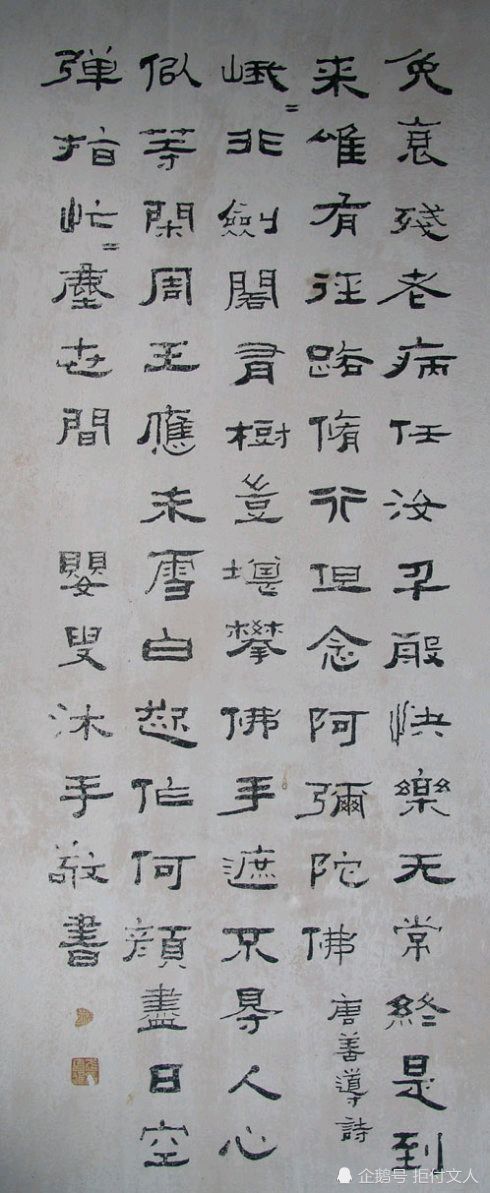 免衰殘老病任汝千般快樂无常終是到
来唯有徑路脩行但念阿彌陀佛
唐善導詩
峨〻非劍閣有樹豈堪攀佛手遮不㝵人心
似等閑周王應未雪白起作何顏盡日空
弹指忙〻塵世間
嬰叟沐手敬書
企鹅号 拒付文人